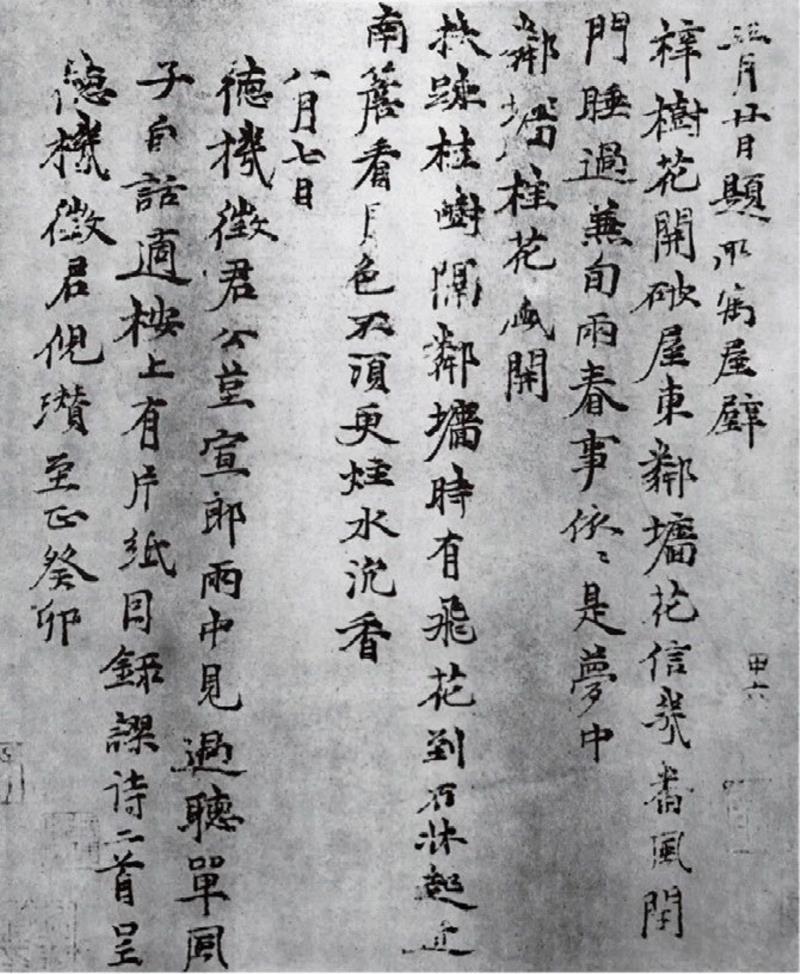 三月廿日題所寓屋壁
梓樹花開破屋東鄰墻花信幾番風閉
門睡過兼旬雨春事依〻是夢中
鄰墻桂花盛開
扶踈桂樹隔鄰墻時有飛花到石牀起近
南簷看月色不須更炷水沉香
八月七日
德機徵君公塋宣郎雨中見過聽單風
子白話適桉上有片紙因録謬詩二首呈
德機徵君倪瓚至正癸卯
甲六